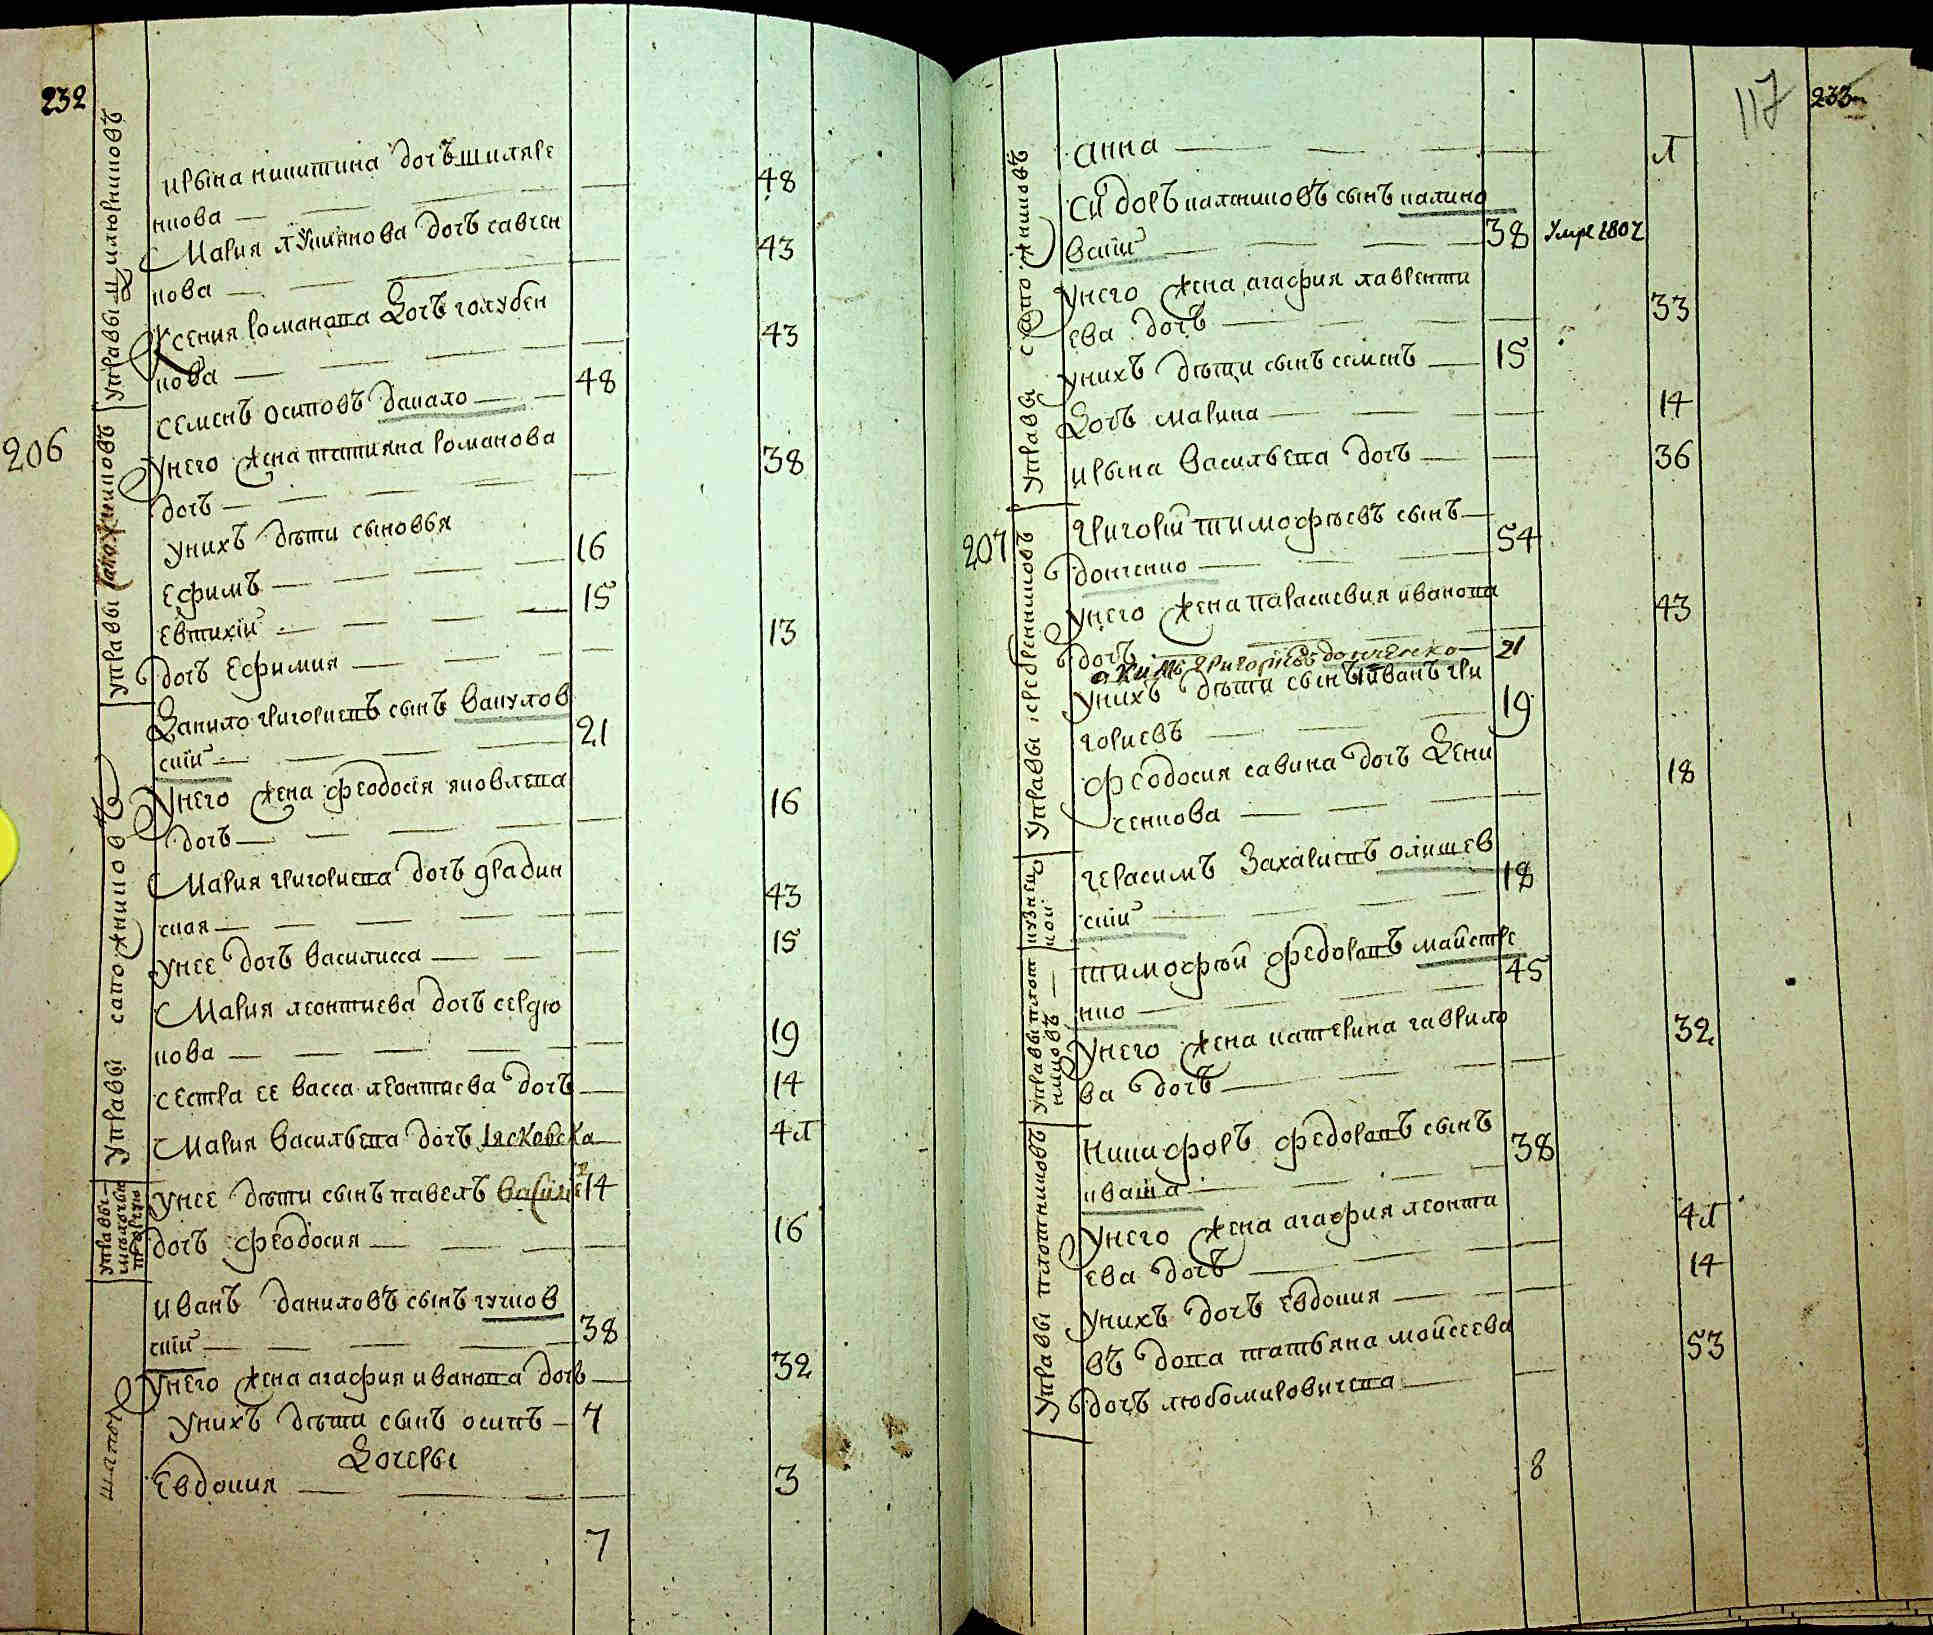 232
управы шмлюрниковъ
ирына никитина дочъ шиляре
нкова — 48
Мария лукиянова дочъ савчен
кова — 43
Ксения романова дочъ голубен
кова — 43
206
управы сапожниковъ
семенъ осиповъ данало — 48
унего жена татияна романова
дочъ — 38
унихъ дѣти сыновья
Ефимъ — 16
Евтихій — 15
дочъ Ефимия — 13
управы сапожниковъ
Данило григориевъ сынъ вакулов
скій — 21
унего жена феодосія яковлева
дочъ — 16
Мария григориева дочъ
ская — 43
унее дочъ василисса — 15
Мария леонтиева дочъ сердю
кова — 19
сестра ее васса леонтиева дочъ — 14
Мария васильева дочъ Лясковска — 40
управы
мелочныя
торгую
унее дѣти сынъ павелъ василіе 14
дочъ феодосия — 16
шапоч
иванъ даниловъ сынъ гучков
скій — 38
унего жена агафия иванова дочъ — 32
унихъ дѣти сынъ осипъ — 7
Дочеры
Евдокия — 3
7
117
233
управы сапожниковъ
Анна — Л
Сидоръ калниковъ сынъ калино
вскій — 38 Умре 1802
унего жена агафия лавренти
ева дочъ — 33
унихъ дѣти сынъ семенъ — 15
Дочъ марина — 14
ирына васильева дочъ — 36
207
управы серебренниковъ
Григорій тимофѣевъ сынъ —
донченко — 54
унего жена параскевия иванова
дочъ — 43
Якимъ Григориевъ донченко — 21
унихъ дѣти сынъ иванъ гри
гориевъ — 19
феодосия савина дочъ Дени
сенкова — 18
кузнец
кой
герасимъ Захариевъ олишев
скій — 18
управы плот
никовъ
тимофѣй федоровъ майстре
нко — 45
унего жена катерина гаврило
ва дочъ — 32
управы плотниковъ
Никифоръ федоровъ сынъ
иваша — 38
унего жена агафия леонти
ева дочъ — 40
унихъ дочъ Евдокия — 14
въ дова татьяна моисеева
дочъ любомировичева — 53
8